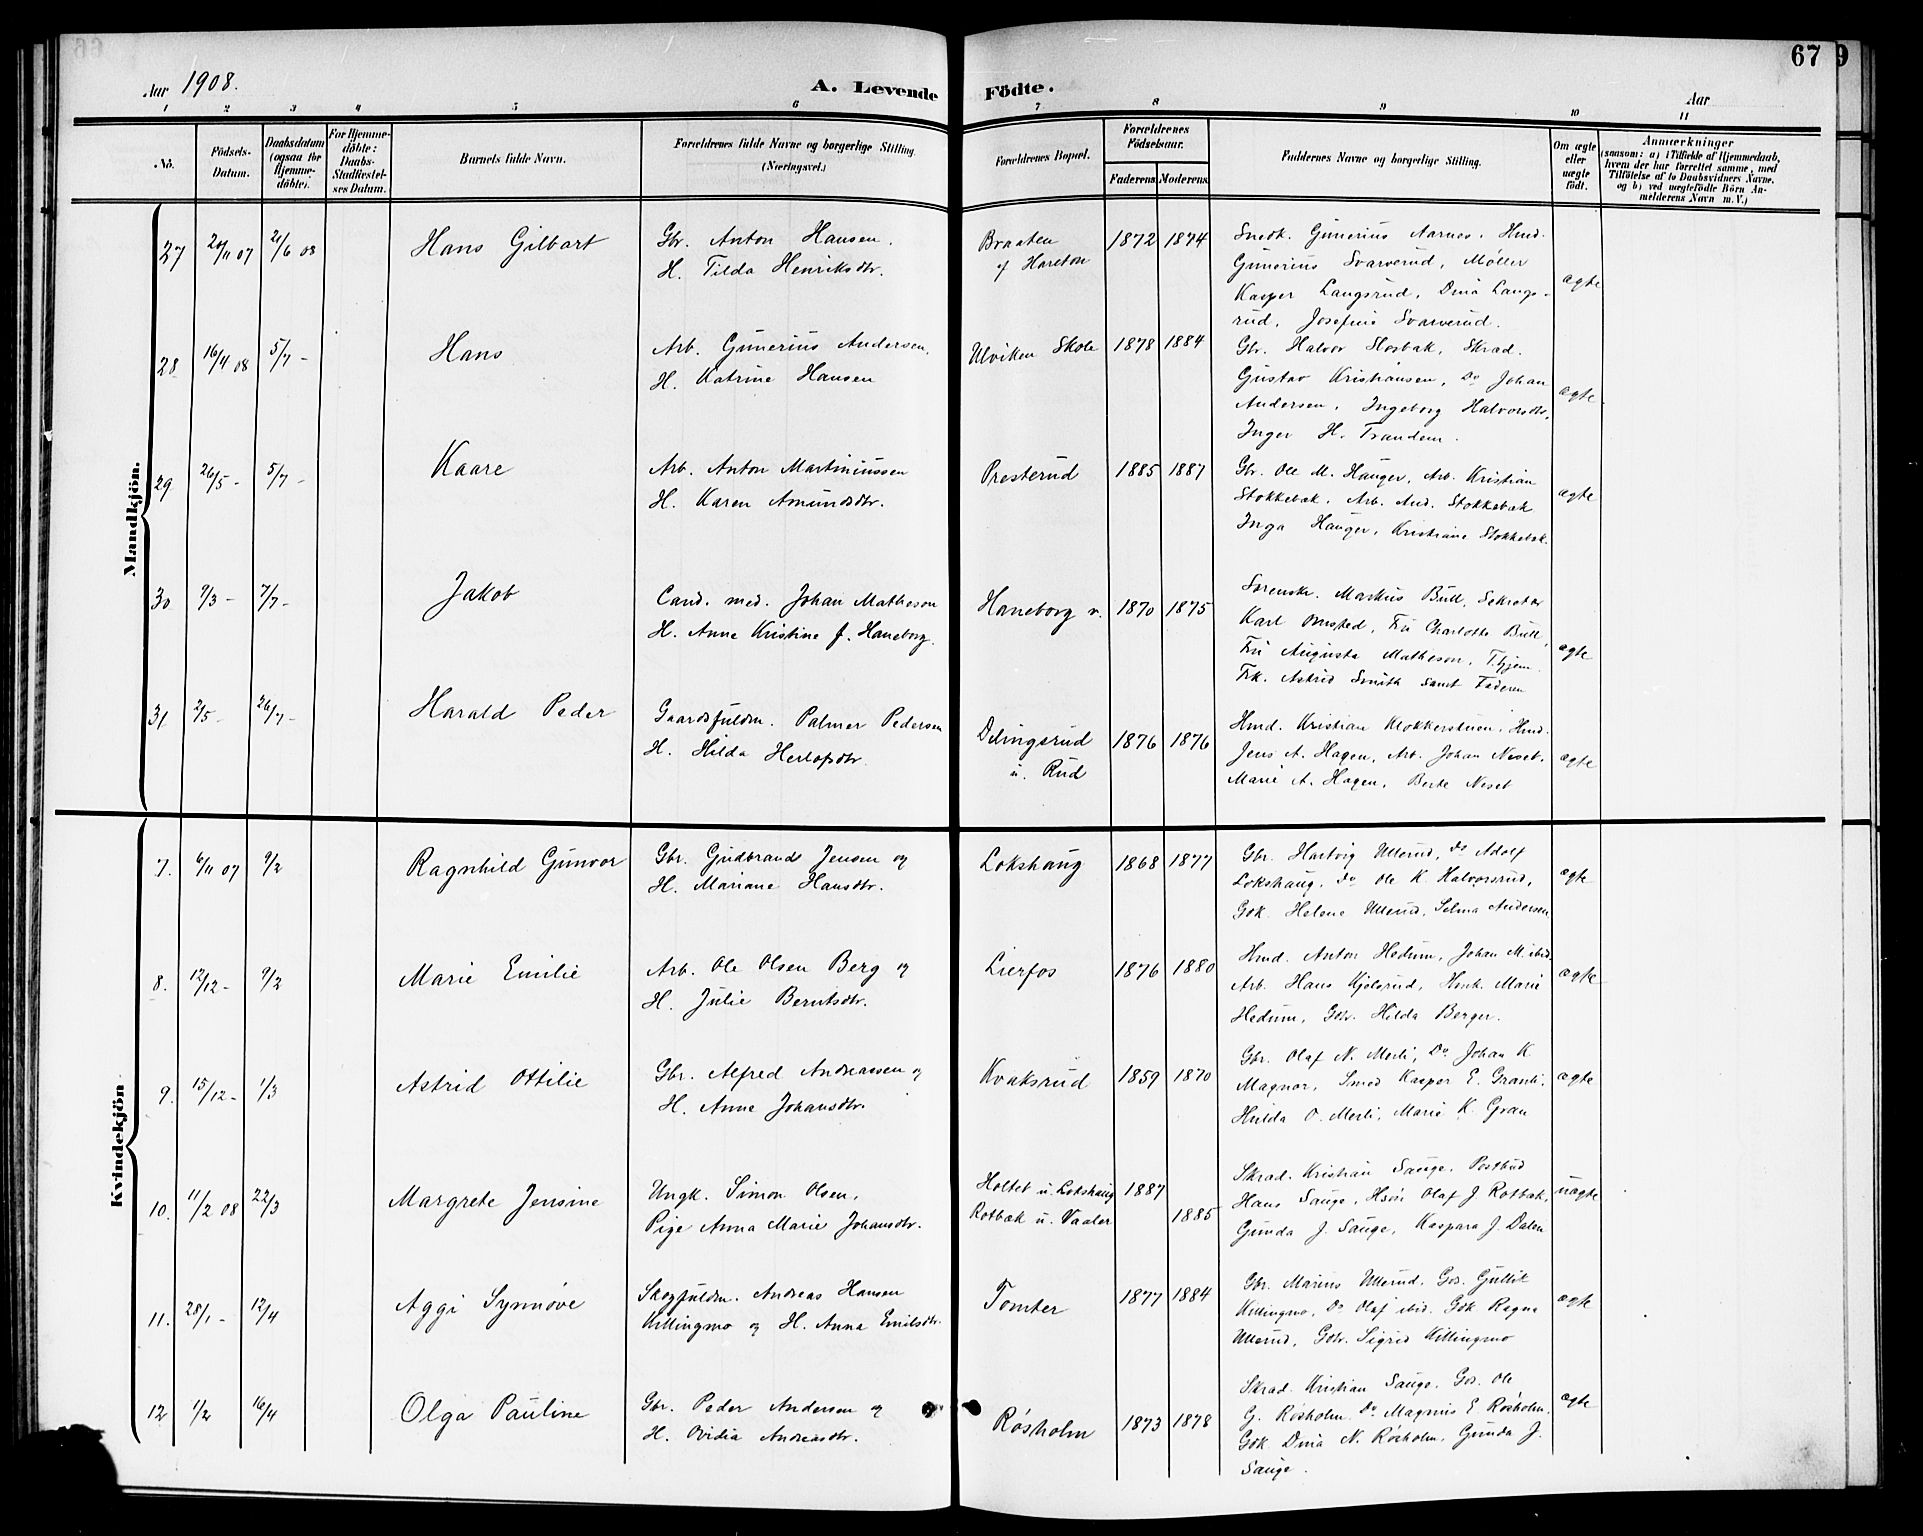 67
9
Aar 1908.
A. Levende Födte.
Aar
1 2 3 4 5 6 7 8 9 10 11
No.
Födsels-Datum.
Daabsdatum (ogsaa for Hjemme-döbte).
For Hjemme-döbte: Daabs-Stadfæstel-ses Datum.
Barnets fulde Navn.
Forældrenes fulde Navne og borgerlige Stilling (Næringsvei.)
Forældrenes Bopæl.
Forældrenes Födselsaar.
Faderens. Moderens.
Faddernes Navne og borgerlige Stilling.
Om ægte eller uægte födt.
Anmærkninger
(saasom: a) i Tilfælde af Hjemmedaab, hvem der har forrettet samme, med Tilföielse af to Daabsvidners Navne, og b) ved uægtefödte Börn An-melderens Navn m. V.)
Mandkjön.
27 20/11 07 21/6 08 Hans Gilbart
Gbr. Anton Hansen.
H. Tilda Henriksdtr.
Braaten
af Hareton
1872 1874
Snedk. Gunerius Aarnes, Hmd.
Gunerius Svarverud, Møller
Kasper Langsrud, Dina Langs-
rud, Josefine Svarverud.
ægte
28 16/4 08 5/7 - Hans
Arb. Gunerius Andersen,
H. Katrine Hansen
Ulviken Skole 1878 1884
Gbr. Halvor Skrad.
Gustav Kristiansen, Do Johan
Andersen, Ingeborg Halvorsdtr,
Inger H. Trandem.
ægte
29 26/5 - 5/7 - Kaare
Arb. Anton Martiniussen
H. Karen Amundsdtr.
Presterud 1885 1887
Gbr. Ole M. Hauger, Arb. Kristian
Stokkebæk, Arb. And. Stokkebæk
Inga Hauger, Kristiane Stokkebæk.
ægte
30 9/3 - 7/7 - Jakob
Cand. med. Johan Matheson
H. Anne Kristine f. Haneborg.
Haneborg v. 1870 1875
Sorenskr. Markus Bull, Sekretær
Karl Omsted, Fru Charlotte Bull,
Fru Augusta Matheson, T. hjem.
Frk. Astrid Smith samt Faderen
ægte
31 2/5 - 26/7 - Harald Peder
Gaardsfuldm. Palmer Pedersen
H. Hilda Herlofsdtr.
Dilingsrud
u. Rud
1876 1876
Hmd. Kristian Klokkerstuen, Hmd.
Jens A. Hagen, Arb. Johan Neset,
Marie A. Hagen, Berte Neset
ægte
Kvindekjön
7. 6/11 07 9/2 Ragnhild Gunvor
Gbr. Gudbrand Jensen og
H. Mariane Hansdtr.
Lokshaug 1868 1877
Gbr. Hartvig Ullerud, Do Adolf
Lokshaug, Do Ole K. Halvorsrud,
Gbk. Helene Ullerud, Selma Andersen
ægte
8. 12/12 - 9/2 Marie Emilie
Arb. Ole Olsen Berg og
H. Julie Berntsdtr.
Lierfos 1876 1880
Hmd. Anton Hedum, Johan M. ibid.
Arb. Hans Kjølsrud, Hmk. Marie
Hedum, Gdr. Hilda Berger.
ægte
9. 15/12 - 1/3 Astrid Ottilie
Gbr. Alfred Andreassen og
H. Anne Johansdtr.
Kvaksrud 1859 1870
Gbr. Olaf N. Merli, Do Johan K.
Magnor, Smed Kasper E. Granli,
Hulda O. Merli, Marie K. Gran
ægte
10. 11/2 08 22/3 Margrete Jensine
Ungk. Simon Olsen,
Pige Anna Marie Johansdtr.
Holtet u. Lokshaug 1887
Rotbæk u. Vaaler 1885
Skrad. Kristian Sauge, Postbud
Hans Sauge, Hsøn Olaf J. Rotbæk,
Gunda J. Sauge, Kaspara J. Dalen
uægte
11. 28/1 - 12/4 Aggi Synnøve
Skogfuldm. Andreas Hansen
Killingmo og H. Anna Emilsdtr.
Tomter 1877 1884
Gbr. Marius Ullerud, Gds. Gullik
Killingmo, Do Olaf ibid. Gbk Ragna
Ullerud, Gdr. Sigrid Killingmo
ægte
12 1/2 16/4 Olga Pauline
Gbr. Peder Andersen og
H. Ovidia Andreasdtr.
Røsholm 1873 1878
Skrad. Kristian Sauge, Gds. Ole
G. Røsholm, Do Magnus E Røsholm,
Gbk. Dina N. Røsholm, Gunda J.
Sauge.
ægte